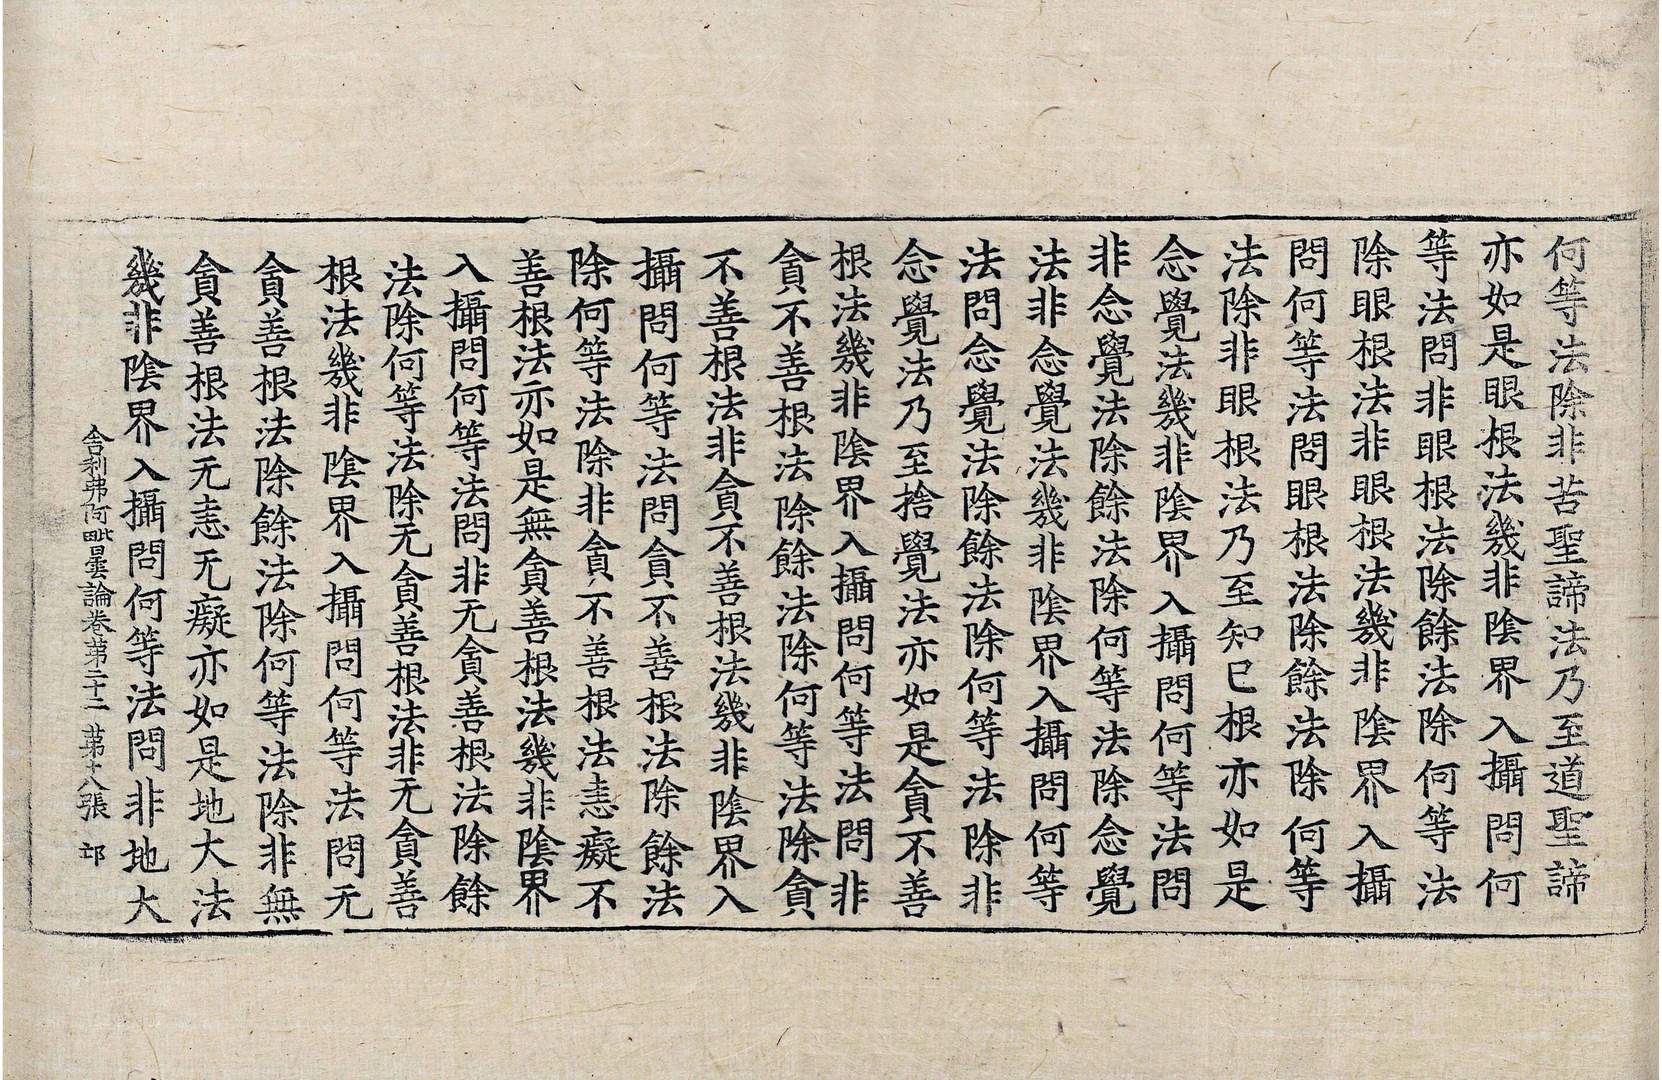 何等法除非苦聖諦法乃至道聖諦
亦如是眼根法幾非陰界入攝問何
等法問非眼根法除餘法除何等法
除眼根法非眼根法幾非陰界入攝
問何等法問眼根法除餘法除何等
法除非眼根法乃至知已根亦如是
念覺法幾非陰界入攝問何等法問
非念覺法除餘法除何等法除念覺
法非念覺法幾非陰界入攝問何等
法問念覺法除餘法除何等法除非
念覺法乃至捨覺法亦如是貪不善
根法幾非陰界入攝問何等法問非
貪不善根法除餘法除何等法除貪
不善根法非貪不善根法幾非陰界入
攝問何等法問貪不善根法除餘法
除何等法除非貪不善根法恚癡不
善根法亦如是無貪善根法幾非陰界
入攝問何等法問非无貪善根法除餘
法除何等法除无貪善根法非无貪善
根法幾非陰界入攝問何等法問无
貪善根法除餘法除何等法除非無
貪善根法无恚无癡亦如是地大法
幾非陰界入攝問何等法問非地大
舍利弗阿毗曇論卷第二十二 第十八張 邙